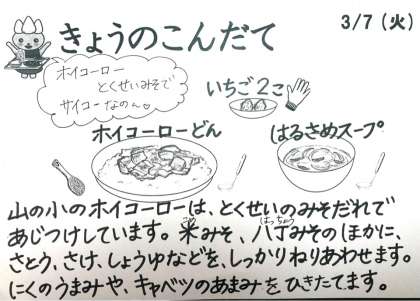 きょうのこんだて
3/7（火）
ホイコーロー
とくせいみそで
サイコーなのん♡
いちご2こ
ホイコーローどん
はるさめスープ
山の小のホイコーローは、とくせいのみそだれで
あじつけしています。米みそ、八丁みそのほかに、
こめ
はっちょう
さとう、さけ、しょうゆなどを、しっかりねりあわせます。
にくのうまみや、キャベツのあまみをひきたてます。